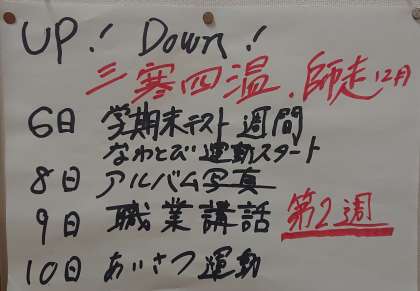 UP! Down!
三寒四温.師走12月
6日 学期末テスト週間
なわとび運動スタート
8日 アルバム写真
9日 職業講話 第2週
10日 あいさつ運動